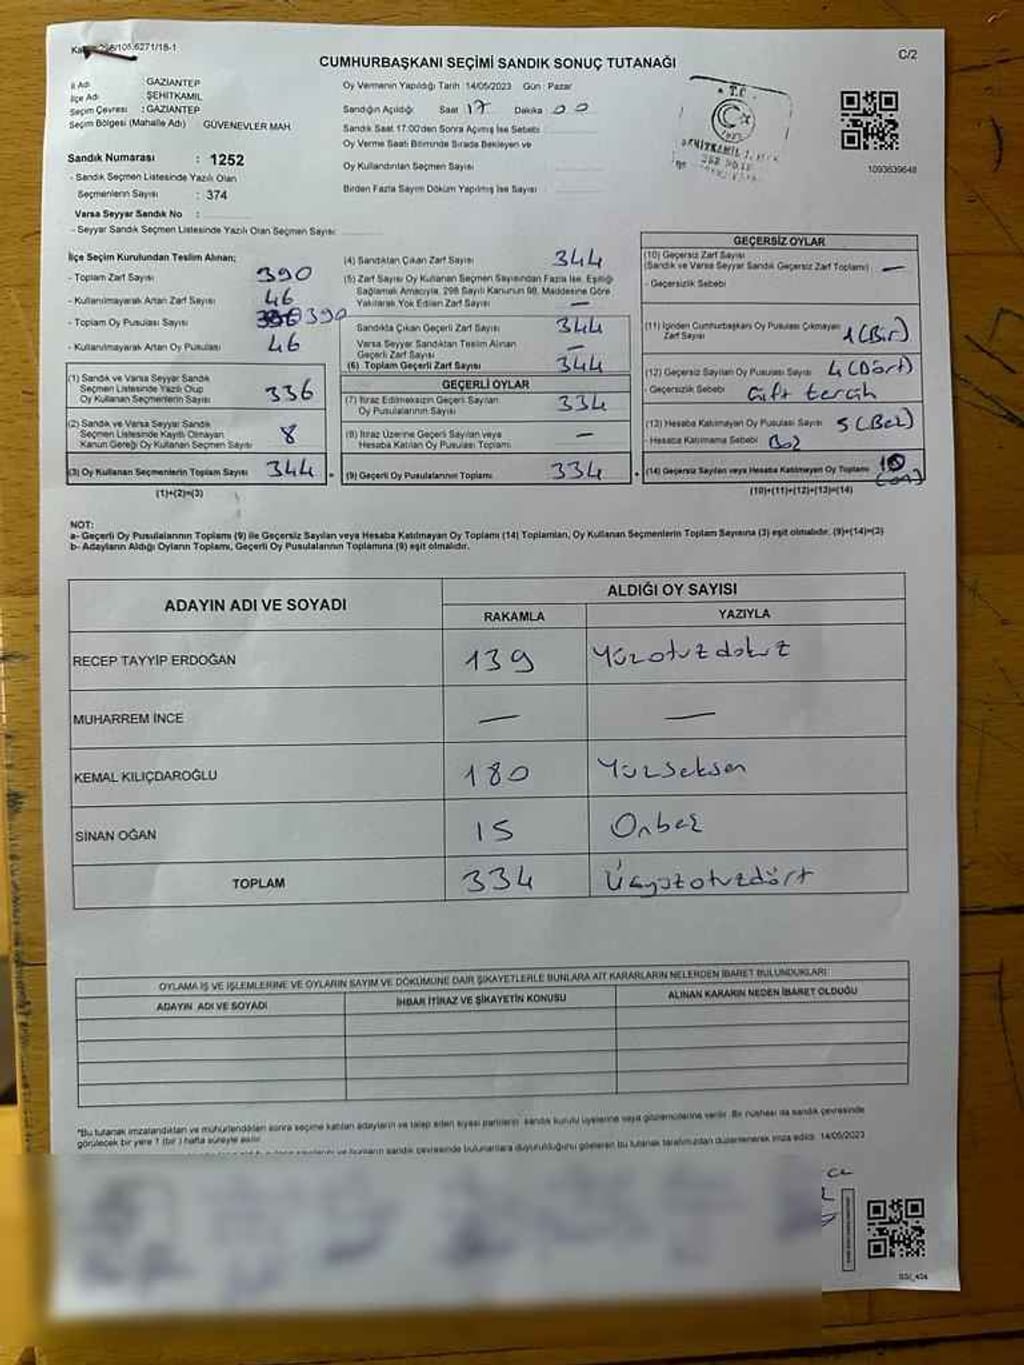 CUMHURBAŞKANI SEÇİMİ SANDIK SONUÇ TUTANAĞI
C/2
İl Adı : GAZİANTEP
İlçe Adı : ŞEHİTKAMİL
Seçim Çevresi : GAZİANTEP
Seçim Bölgesi (Mahalle Adı) GÜVENEVLER MAH.
Sandık Numarası : 1252
- Sandık Seçmen Listesinde Yazılı Olan
Seçmenlerin Sayısı : 374
Varsa Seyyar Sandık No :
- Seyyar Sandık Seçmen Listesinde Yazılı Olan Seçmen Sayısı
Oy Vermenin Yapıldığı Tarih :14/05/2023 Gün : Pazar
Sandığın Açıldığı Saat 17 Dakika 00
Sandık Saat 17:00'den Sonra Açımış İse Sebebi
Oy Verme Saati Bitiminde Sırada Bekleyen ve
Oy Kullandırılan Seçmen Sayısı
Birden Fazla Sayım Döküm Yapılmış İse Sayısı
T.C.
1093639648
İlçe Seçim Kurulundan Teslim Alınan;
- Toplam Zarf Sayısı 390
- Kullanılmayarak Artan Zarf Sayısı 46
- Toplam Oy Pusulası Sayısı 390
- Kullanılmayarak Artan Oy Pusulası 46
(1) Sandık ve Varsa Seyyar Sandık
Seçmen Listesinde Yazılı Olup
Oy Kullanan Seçmenlerin Sayısı 336
(2) Sandık ve Varsa Seyyar Sandık
Seçmen Listesinde Kayıtlı Olmayan
Kanun Gereği Oy Kullanan Seçmen Sayısı 8
(3) Oy Kullanan Seçmenlerin Toplam Sayısı 344
(1)+(2)=(3)
(4) Sandıktan Çıkan Zarf Sayısı 344
(5) Zarf Sayısı Oy Kullanan Seçmen Sayısından Fazla İse, Eşitliği
Sağlamak Amacıyla, 298 Sayılı Kanunun 98. Maddesine Göre
Yakılarak Yok Edilen Zarf Sayısı —
Sandıkta Çıkan Geçerli Zarf Sayısı 344
Varsa Seyyar Sandıktan Teslim Alınan
Geçerli Zarf Sayısı —
(6) Toplam Geçerli Zarf Sayısı 344
GEÇERLİ OYLAR
(7) İtiraz Edilmeksizin Geçerli Sayılan
Oy Pusulalarının Sayısı 334
(8) İtiraz Üzerine Geçerli Sayılan veya
Hesaba Katılan Oy Pusulası Toplamı —
(9) Geçerli Oy Pusulalarının Toplamı 334
GEÇERSİZ OYLAR
(10) Geçersiz Zarf Sayısı
(Sandık ve Varsa Seyyar Sandık Geçersiz Zarf Toplamı) —
- Geçersizlik Sebebi
(11) İçinden Cumhurbaşkanı Oy Pusulası Çıkmayan
Zarf Sayısı 1 (Bir)
(12) Geçersiz Sayılan Oy Pusulası Sayısı 4 (Dört)
- Geçersizlik Sebebi Çift tercih
(13) Hesaba Katılmayan Oy Pusulası Sayısı 5 (Beş)
- Hesaba Katılmama Sebebi Boş
(14) Geçersiz Sayılan veya Hesaba Katılmayan Oy Toplamı 10 (on)
(10)+(11)+(12)+(13)=(14)
NOT:
a- Geçerli Oy Pusulalarının Toplamı (9) ile Geçersiz Sayılan veya Hesaba Katılmayan Oy Toplamı (14) Toplamları, Oy Kullanan Seçmenlerin Toplam Sayısına (3) eşit olmalıdır. (9)+(14)=(3)
b- Adayların Aldığı Oyların Toplamı, Geçerli Oy Pusulalarının Toplamına (9) eşit olmalıdır.
ADAYIN ADI VE SOYADI
ALDIĞI OY SAYISI
RAKAMLA YAZIYLA
RECEP TAYYİP ERDOĞAN 139 Yüzotuzdokuz
MUHARREM İNCE — —
KEMAL KILIÇDAROĞLU 180 Yüzseksen
SİNAN OĞAN 15 Onbeş
TOPLAM 334 Üçyüzotuzdört
OYLAMA İŞ VE İŞLEMLERİNE VE OYLARIN SAYIM VE DÖKÜMÜNE DAİR ŞİKAYETLERLE BUNLARA AİT KARARLARIN NELERDEN İBARET BULUNDUKLARI
ADAYIN ADI VE SOYADI İHBAR İTİRAZ VE ŞİKAYETİN KONUSU ALINAN KARARIN NEDEN İBARET OLDUĞU
*Bu tutanak imzalandıktan ve mühürlendikten sonra seçime katılan adayların ve talep eden siyasi partilerin sandık kurulu üyelerine veya gözlemcilerine verilir. Bir nüshası da sandık çevresinde
görülecek bir yere 1 (bir) hafta süreyle asılır.
sandık çevresinde bulunanlara duyurulduğunu gösteren bu tutanak tarafımızdan düzenlenerek imza edildi. 14/05/2023